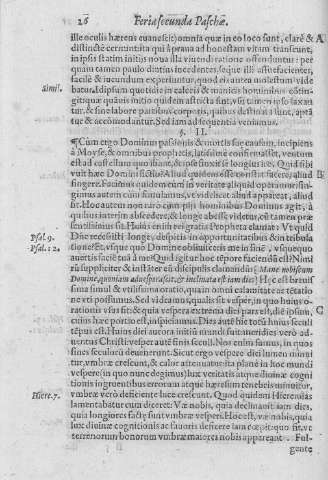 26 Feria secunda Paschæ.
ille oculis hærens euanescit) omnia quæ in eo loco sunt, clarè & A
distinctè cernunt: ita qui à praua ad honestam vitam transeunt,
in ipsis statim initijs noua illa viuendi ratione offenduntur: per
quam tamen paulo diutius incedentes, seque illi assuefacientes,
facilè & iucundum experiuntur, quod eis autea molestum vide
simil. batur. Idipsum quotidie in calceis & manicis hominibus cōtin-
git: quæ quanis initio quidem astricta sint, vsu tamen ipso laxan
tur, & sine labore partibus corporis, quibus destinata sunt, aptā
tur & accommodantur. Sed iam ad sequentia veniamus.
§. II.
¶Cùm ergo Dominus passionis & mortis suæ causam, incipiens
à Moyse, & omnibus prophetis, ipsis confirmasset, ventum
est ad castellum quo ibant, & ipse finxit se longius ire. Quid sibi
vult hæc Domini fictio? Aliud quidem esse constat facere, aliud B
fingere. Facimus euidem cùm in veritate aliquid operamur: fin-
gimus autem cùm simulamus, vt videlicet aliud appareat, aliud
sit. Hoc autem non raro cum pijs hominibus Dominus agit, à
quibus interim abscedere, & longe abesse videtur, cū tamen præ
sentissimus sit. Huius enim rei gratia Propheta clamat: Vt quid
Psal. 9. Dne recessisti longe, despicis in opportunitatibus & in tribula
Psal. 12. tione? Et, vsque quo Domine obliuisceris me in finē, vsquequo
auertis faciē tuā à me? Quid igitur hoc tēpore faciendū est? Nimi
rū suppliciter & instāter cū discipulis clamandū: [Mane nobiscum
Domine, quoniam aduesperascit, & inclinata est iam dies] Hæc est breuis
sima simul & vtilissima oratio, quam omni calamitatis ac tētatio
nis
vti possumus. Sed videamus, qualis sit vesper, in quo huius o-
rationis vsus sit: & quia vespera extrema diei pars est, diē ipsum, C
cuius hæc portio est, inspiciamus. Dies autē hic totū huius seculi
tēpus est. Huius diei aurora initiū mundi fuit: meridies verò ad-
uentus Christi: vesper autē finis seculi. Nos enim sumus, in quos
fines seculorū deuenerunt. Sicut ergo vespere diei lumen minui
tur, vmbræ crescunt, & calor attenuatur: ita planè in hoc mundi
vespere (in quo nunc degimus) lux veritatis atque diuinæ cogni-
tionis ingruentibus errorum atque hæresum tenebris minuitur,
vmbræ verò deficiente luce crescunt. Quod quidem Hieremias
Hiere. 7. lamentabatur cum diceret: Væ nobis, quia declinauit iam dies,
quia longiores factę sunt vmbræ vesperi. Hoc est, væ nobis, quia
lux diuinæ cognitionis ac fauoris deficere iam cœpit: quo fit, vt
terrenorum bonorum vmbræ maiores nobis appareant. Ful-
gente